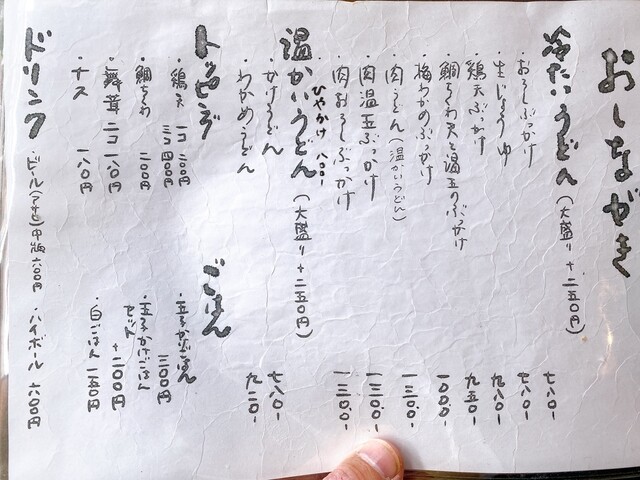 おしながき
冷たいうどん(大盛り+二五〇円)
・おろしぶっかけ 七八〇-
・生じょうゆ 七八〇-
・鶏天ぶっかけ 九八〇-
・鯛ちくわ天と温玉のぶっかけ 九五〇-
・梅わかめぶっかけ 一〇〇〇-
・肉うどん(温かいうどん) 一三〇〇-
・肉温玉ぶっかけ 一三〇〇-
・肉おろしぶっかけ 一三〇〇-
・ひやかけ 八〇〇-
温かいうどん(大盛り+二五〇円)
・かけうどん 七八〇-
・わかめうどん 九二〇-
トッピング
・鶏天 一コ 二〇〇円
三コ 四〇〇円
・鯛ちくわ 二〇〇円
・舞茸 二コ 一八〇円
・ナス 一八〇円
ごはん
・玉子かけごはん
三〇〇円
・玉子かけごはん
セット +二〇〇円
・白ごはん 一五〇円
ドリンク ・ビール(アサヒ)中瓶 六〇〇円 ・ハイボール 六〇〇円